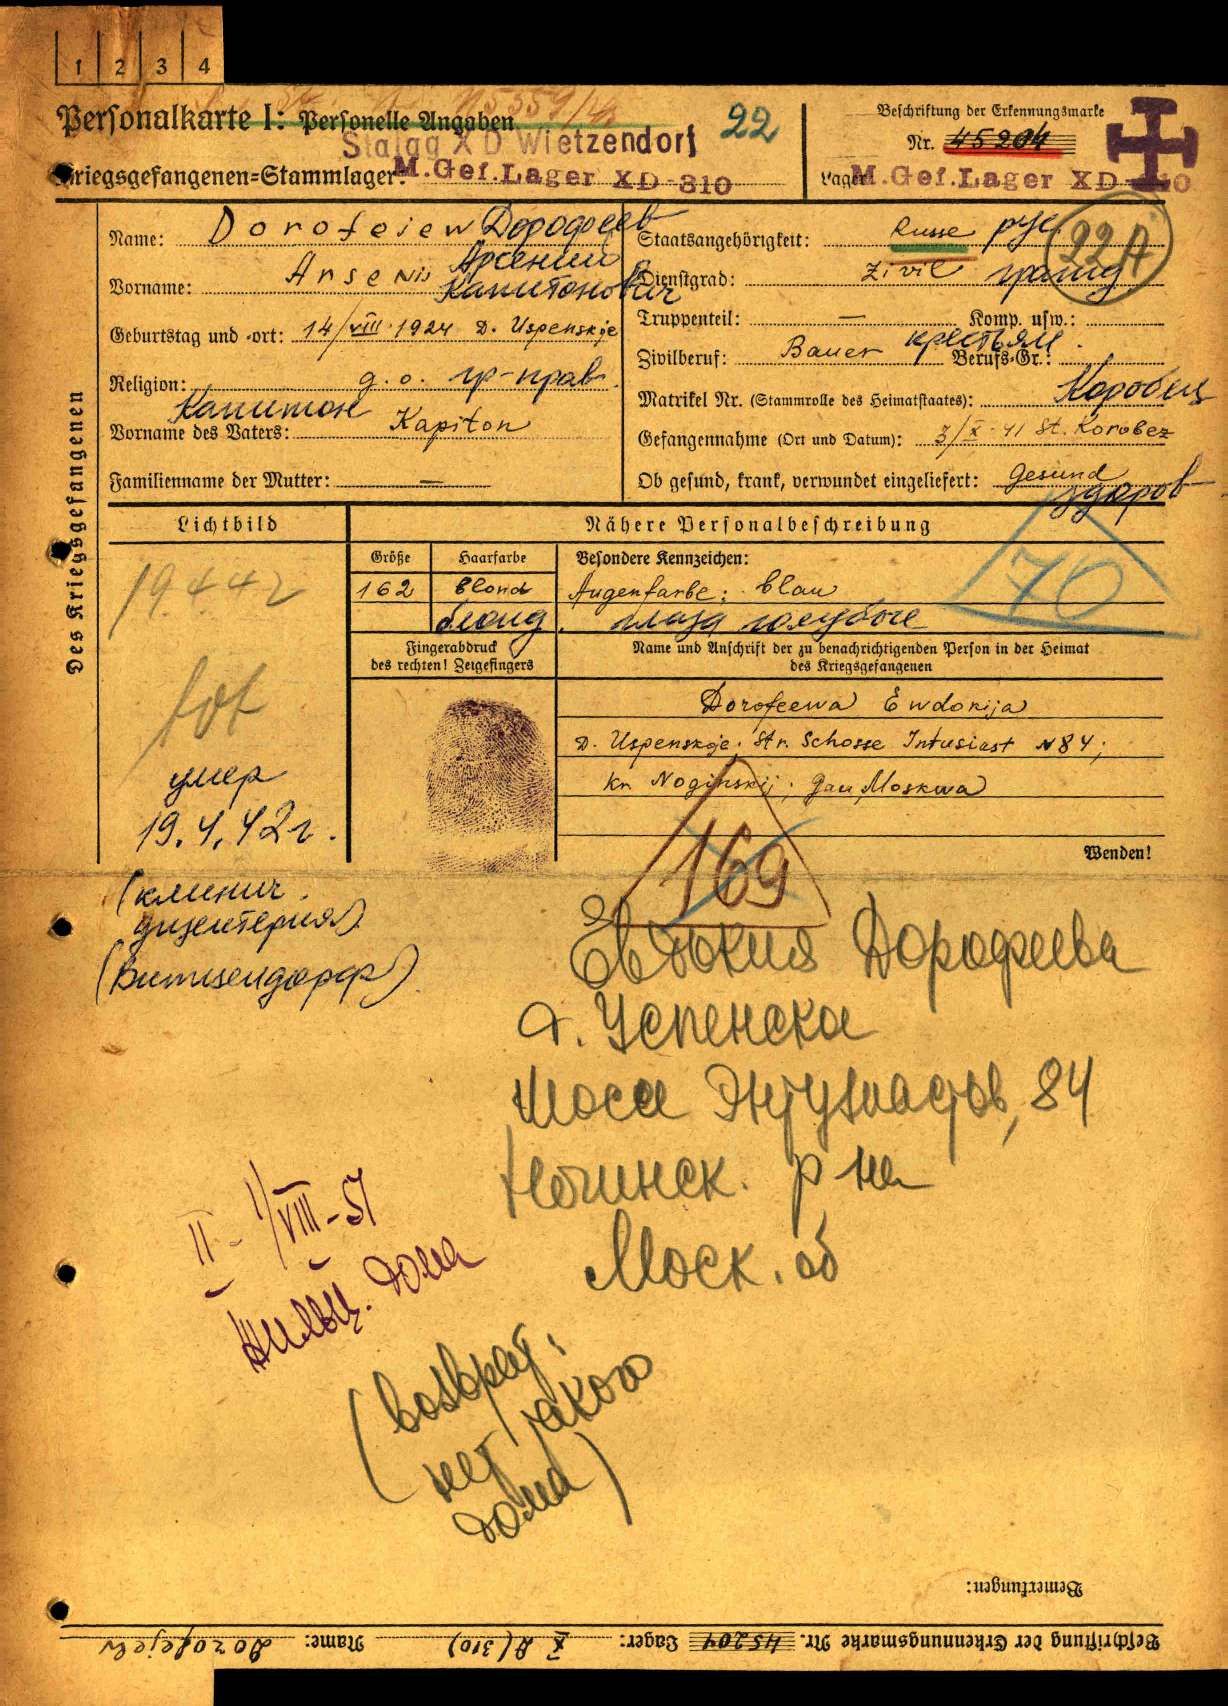 1 2 3 4
Personalkarte I: Personelle Angaben
22
Stalag X D Wietzendorf
Kriegsgefangenen=Stammlager: M.Gef.Lager XD-310
Beschriftung der Erkennungsmarke
Nr. 45204
Lager M.Gef.Lager XD-310
Des Kriegsgefangenen
Name: Dorofeiew Дорофеев
Vorname: Arsenis Арсений
Капитонович
Geburtstag und -ort: 14/VIII 1924 D. Uspenskje
Religion: g. o. гр-прав
Капитон
Vorname des Vaters: Kapiton
Familienname der Mutter: —
Staatsangehörigkeit: Russe рус.
22A
Dienstgrad: Zivil гражд
Truppenteil: — Komp. usw.:
Zivilberuf: Bauer крестьян. Berufs-Gr.:
Matrikel Nr. (Stammrolle des Heimatstaates): Коробец
Gefangennahme (Ort und Datum): 3/X-41 St. Korobez
Ob gesund, krank, verwundet eingeliefert: Gesund
здоров
Lichtbild
Nähere Personalbeschreibung
70
Größe Haarfarbe Besondere Kennzeichen:
162 blond Augenfarbe: blau
блонд. глаза голубые
19.4.42
tot
умер
19.4.42г.
(клинич.
дизентерия)
(Витцендорф)
Fingerabdruck
des rechten! Zeigefingers
Name und Anschrift der zu benachrichtigenden Person in der Heimat
des Kriegsgefangenen
Dorofeewa Ewdokija
D. Uspenskoje; Str. Schosse Intusiast N 84;
Kr. Noginskij; Gau Moskwa
169
Wenden!
Евдокия Дорофеева
д. Успенска
Шоссе Энтузиастов, 84
Ногинск. р на
Моск. об
II - 1/VIII-51
Жильц. дома
(возврат.
нет такого
дома)
Bemerkungen:
Beschriftung der Erkennungsmarke Nr. 45204 Lager: X D (310) Name: Dorofejew